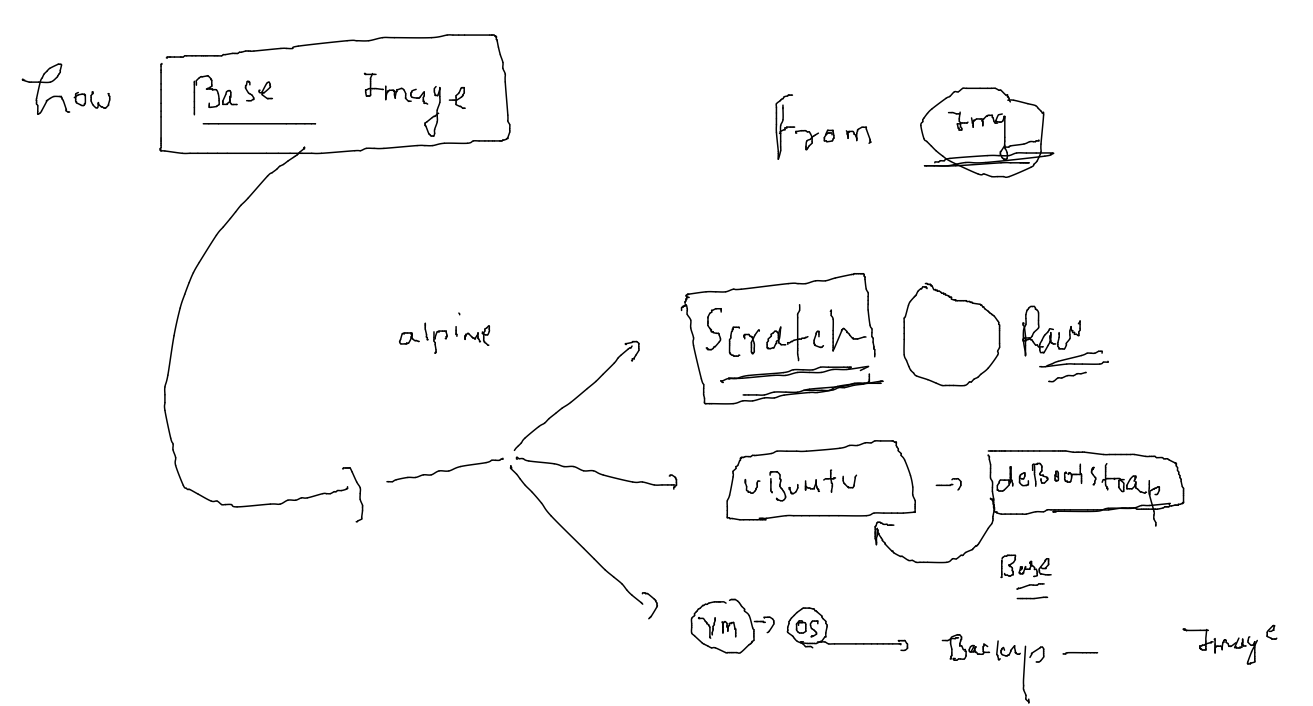 how Base Image
From Img
alpine
Scratch Raw
UBUntU deBootStrap
Base
VM OS Backup Image